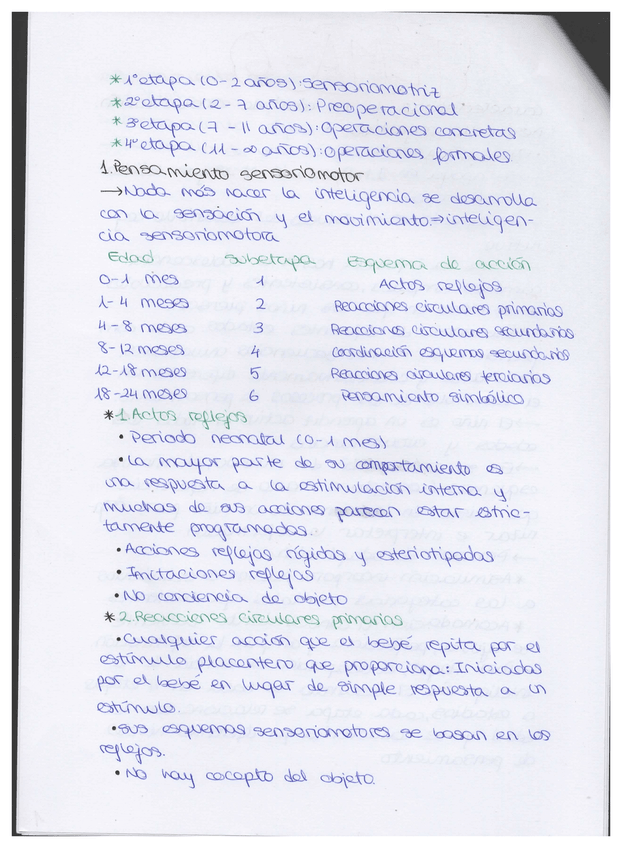 * 1ª etapa (0-2 años): sensoriomotriz
* 2ª etapa (2-7 años): Preoperacional
* 3ª etapa (7-11 años): Operaciones concretas
* 4ª etapa (11-∞ años): Operaciones formales
1. Pensamiento sensoriomotor
→ Nada más nacer la inteligencia se desarrolla
con la sensación y el movimiento. ⇒ inteligen-
cia sensoriomotora
Edad subetapa Esquema de acción
0-1 mes 1 Actos reflejos
1-4 meses 2 Reacciones circulares primarias
4-8 meses 3 Reacciones circulares secundarias
8-12 meses 4 Coordinación esquemas secundarios
12-18 meses 5 Reacciones circulares terciarias
18-24 meses 6 Pensamiento simbólico
* 1. Actos reflejos
• Periodo neonatal (0-1 mes)
• La mayor parte de su comportamiento es
una respuesta a la estimulación interna y
muchas de sus acciones parecen estar estric-
tamente programadas.
• Acciones reflejas rígidas y esteriotipadas
• Imitaciones reflejas
• No conciencia de objeto
* 2. Reacciones circulares primarias
• Cualquier acción que el bebé repita por el
estímulo placentero que proporciona: Iniciadas
por el bebé en lugar de simple respuesta a un
estímulo.
• sus esquemas sensoriomotores se basan en los
reflejos.
• No hay cocepto del objeto.